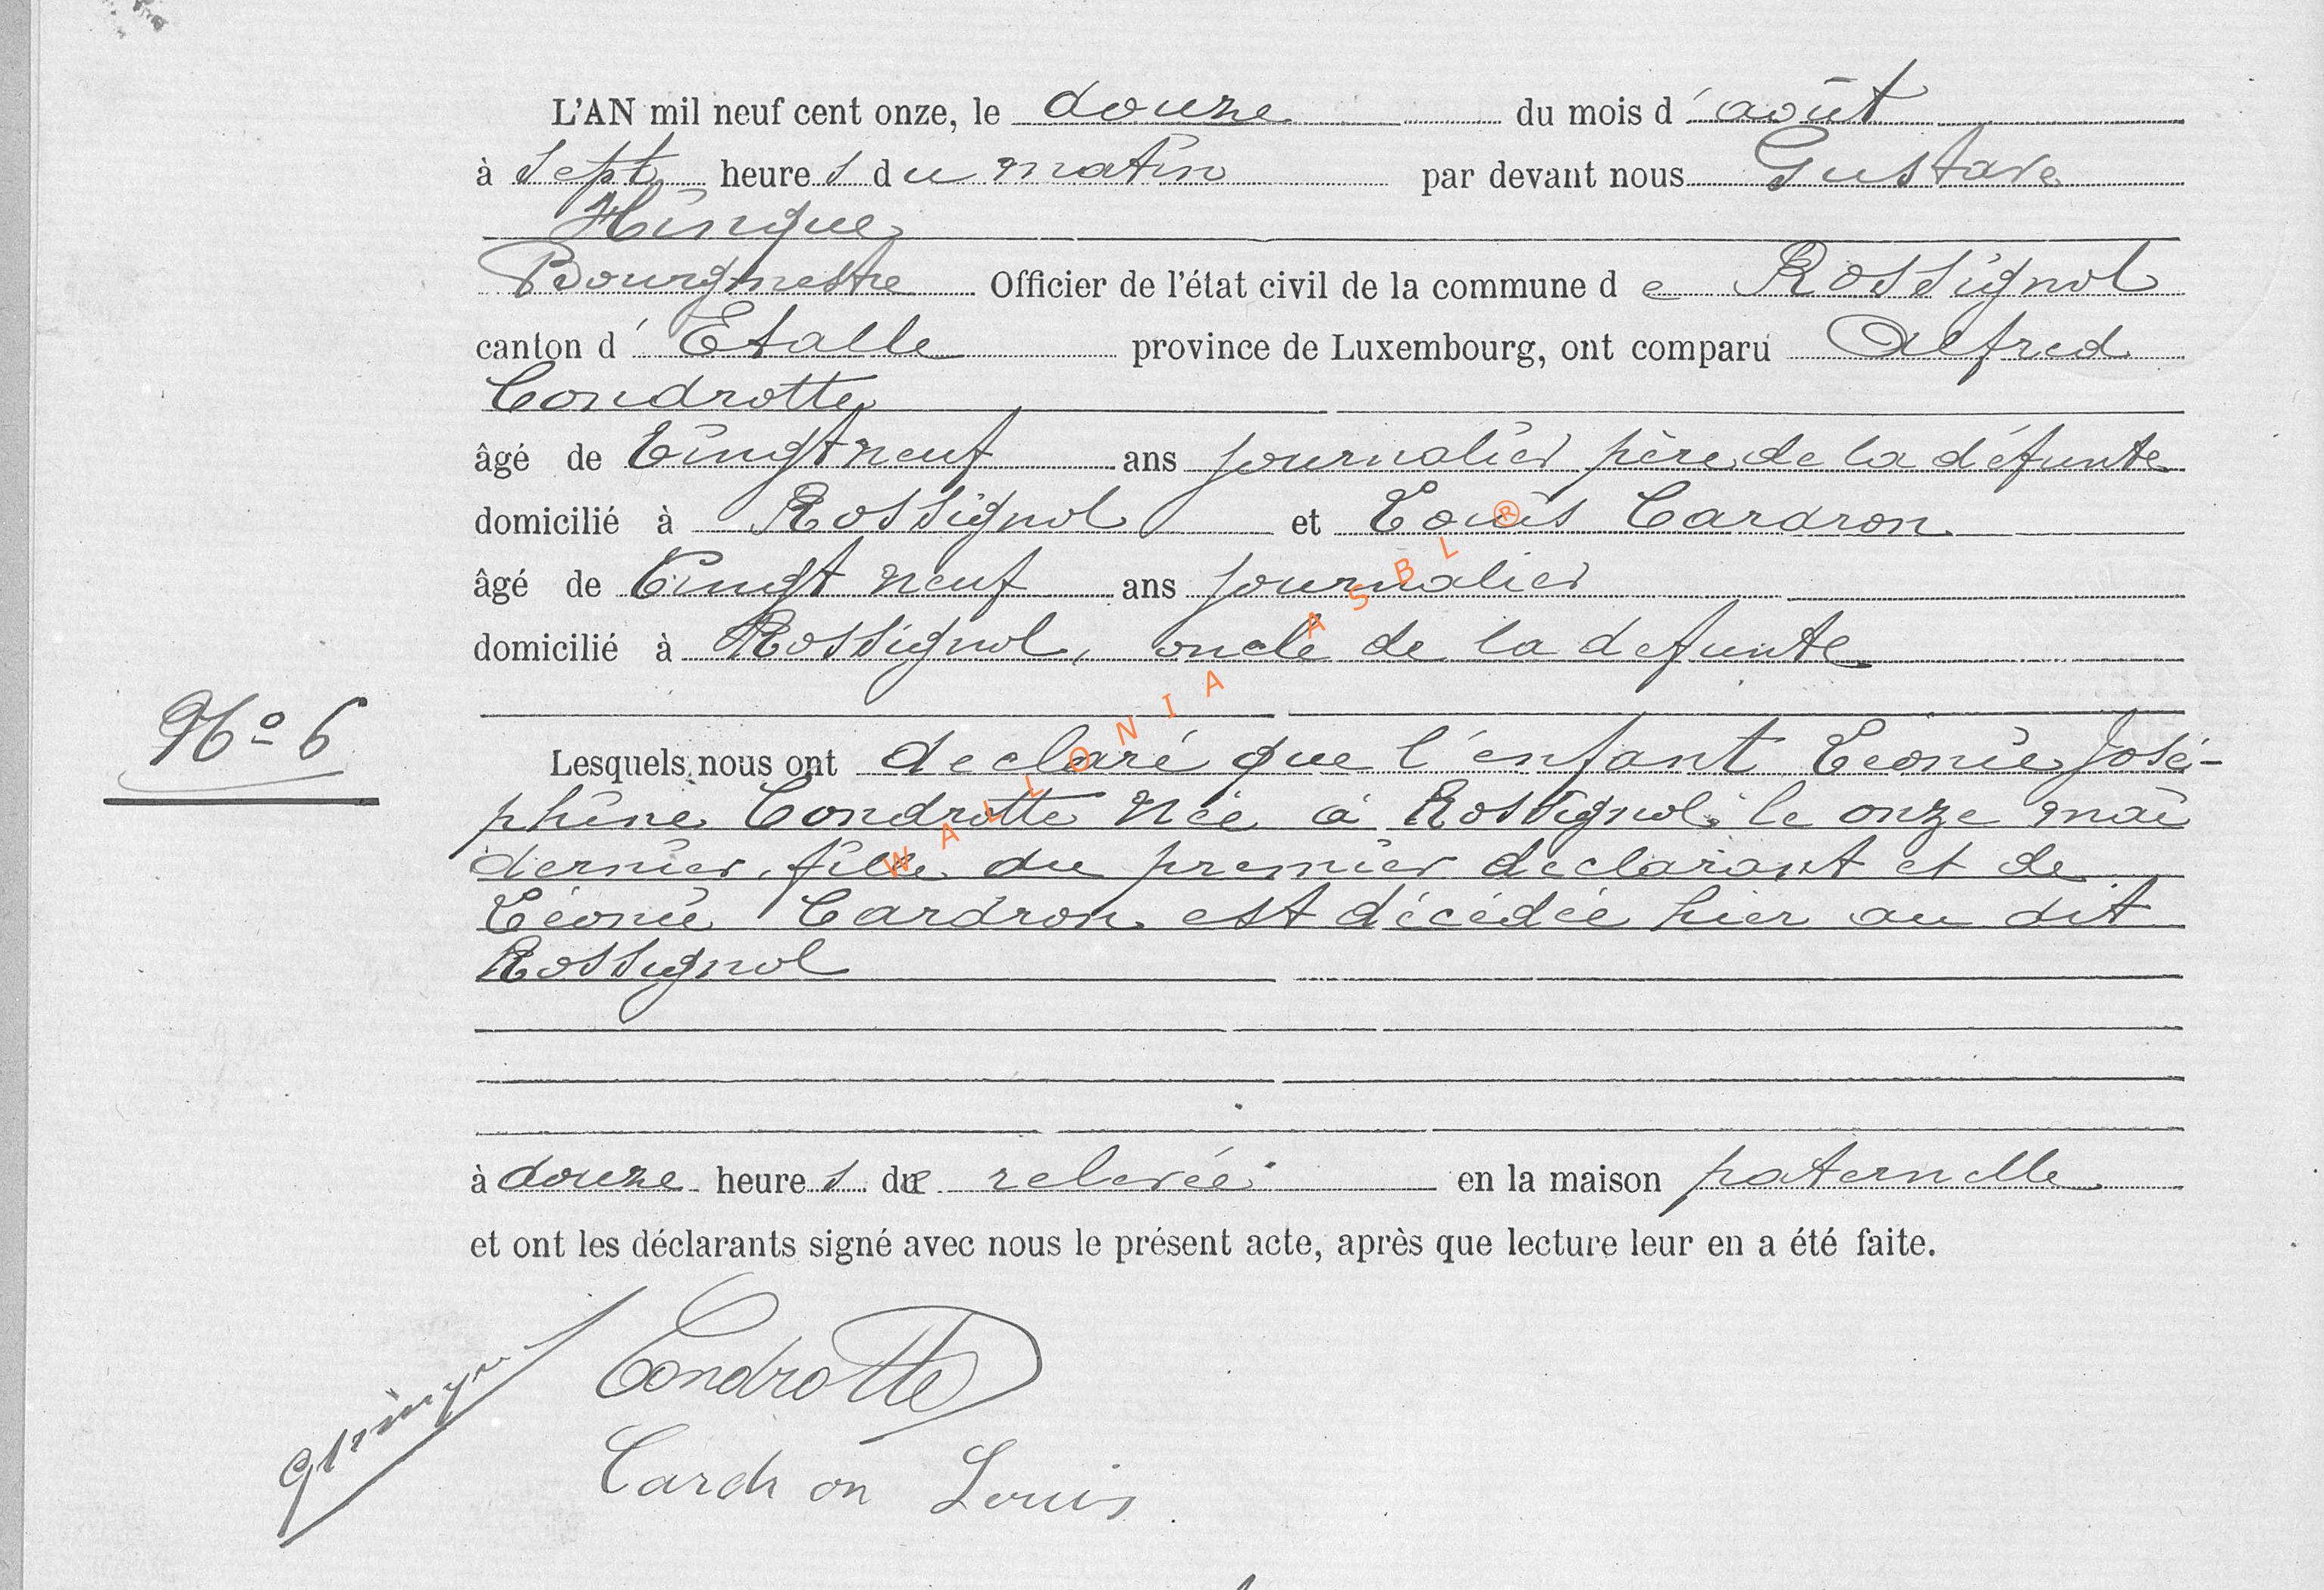 L'AN mil neuf cent onze, le douze du mois d'août
à sept heures du matin par devant nous Gustave
Hinque
Bourgmestre Officier de l'état civil de la commune de Rossignol
canton d'Etalle province de Luxembourg, ont comparu Alfred
Condrotte
âgé de Vingt neuf ans journalier père de la défunte
domicilié à Rossignol et Louis Cardron
âgé de Vingt neuf ans journalier
domicilié à Rossignol, oncle de la defunte
No 6
Lesquels nous ont declaré que l'enfant Léonie José-
phine Condrotte Née à Rossignol le onze mai
dernier, fille du premier declarant et de
Léonie Cardron est décédée hier au dit
Rossignol
à douze heures de relevée en la maison paternelle
et ont les déclarants signé avec nous le présent acte, après que lecture leur en a été faite.
GHinque
Condrotte
Cardron Louis
WALLONIA ASBL ®